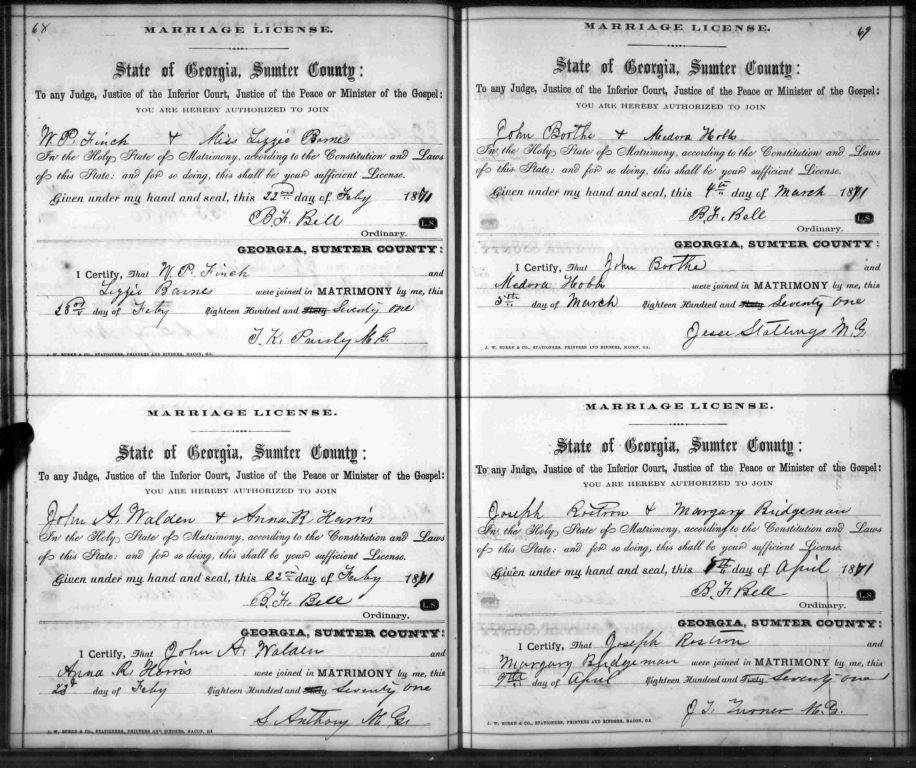 68
MARRIAGE LICENSE.
State of Georgia, Sumter County:
To any Judge, Justice of the Inferior Court, Justice of the Peace or Minister of the Gospel:
YOU ARE HEREBY AUTHORIZED TO JOIN
W. P. Finch & Miss Lizzie Barnes
In the Holy State of Matrimony, according to the Constitution and Laws
of this State: and for so doing, this shall be your sufficient License.
Given under my hand and seal, this 22nd day of Feby 1871
B. F. Bell L.S.
Ordinary.
GEORGIA, SUMTER COUNTY:
I Certify, That W. P. Finch and
Lizzie Barnes were joined in MATRIMONY by me, this
day of Feby Eighteen Hundred and Sixty Seventy one
T. K. Pursley M. G.
J. W. BURKE & CO., STATIONERS, PRINTERS AND BINDERS, MACON, GA.
MARRIAGE LICENSE.
State of Georgia, Sumter County:
To any Judge, Justice of the Inferior Court, Justice of the Peace or Minister of the Gospel:
YOU ARE HEREBY AUTHORIZED TO JOIN
John A. Walden & Anna R. Harris
In the Holy State of Matrimony, according to the Constitution and Laws
of this State: and for so doing, this shall be your sufficient License.
Given under my hand and seal, this 22nd day of Feby 1871
B. F. Bell L.S.
Ordinary.
GEORGIA, SUMTER COUNTY:
I Certify, That John A. Walden and
Anna R. Harris were joined in MATRIMONY by me, this
23d day of Feby Eighteen Hundred and Sixty Seventy one
S. Anthony M. G.
J. W. BURKE & CO., STATIONERS, PRINTERS AND BINDERS, MACON, GA
69
MARRIAGE LICENSE.
State of Georgia, Sumter County:
To any Judge, Justice of the Inferior Court, Justice of the Peace or Minister of the Gospel:
YOU ARE HEREBY AUTHORIZED TO JOIN
John Boothe & Medora Hobb
In the Holy State of Matrimony, according to the Constitution and Laws
of this State: and for so doing, this shall be your sufficient License.
Given under my hand and seal, this 4th day of March 1871
B. F. Bell L.S.
Ordinary.
GEORGIA, SUMTER COUNTY:
I Certify, That John Boothe and
Medora Hobb were joined in MATRIMONY by me, this
5th day of March Eighteen Hundred and Sixty Seventy one
Jesse Stallings M. G.
J. W. BURKE & CO., STATIONERS, PRINTERS AND BINDERS, MACON, GA.
MARRIAGE LICENSE.
State of Georgia, Sumter County:
To any Judge, Justice of the Inferior Court, Justice of the Peace or Minister of the Gospel:
YOU ARE HEREBY AUTHORIZED TO JOIN
Joseph Rostron & Margary Bridgeman
In the Holy State of Matrimony, according to the Constitution and Laws
of this State: and for so doing, this shall be your sufficient License.
Given under my hand and seal, this 8th day of April 1871
B. F. Bell L.S.
Ordinary.
GEORGIA, SUMTER COUNTY:
I Certify, That Joseph Rostron and
Margary Bridgeman were joined in MATRIMONY by me, this
9th day of April Eighteen Hundred and Sixty Seventy one
J. T. Turner M. G.
J. W. BURKE & CO., STATIONERS, PRINTERS AND BINDERS, MACON, GA